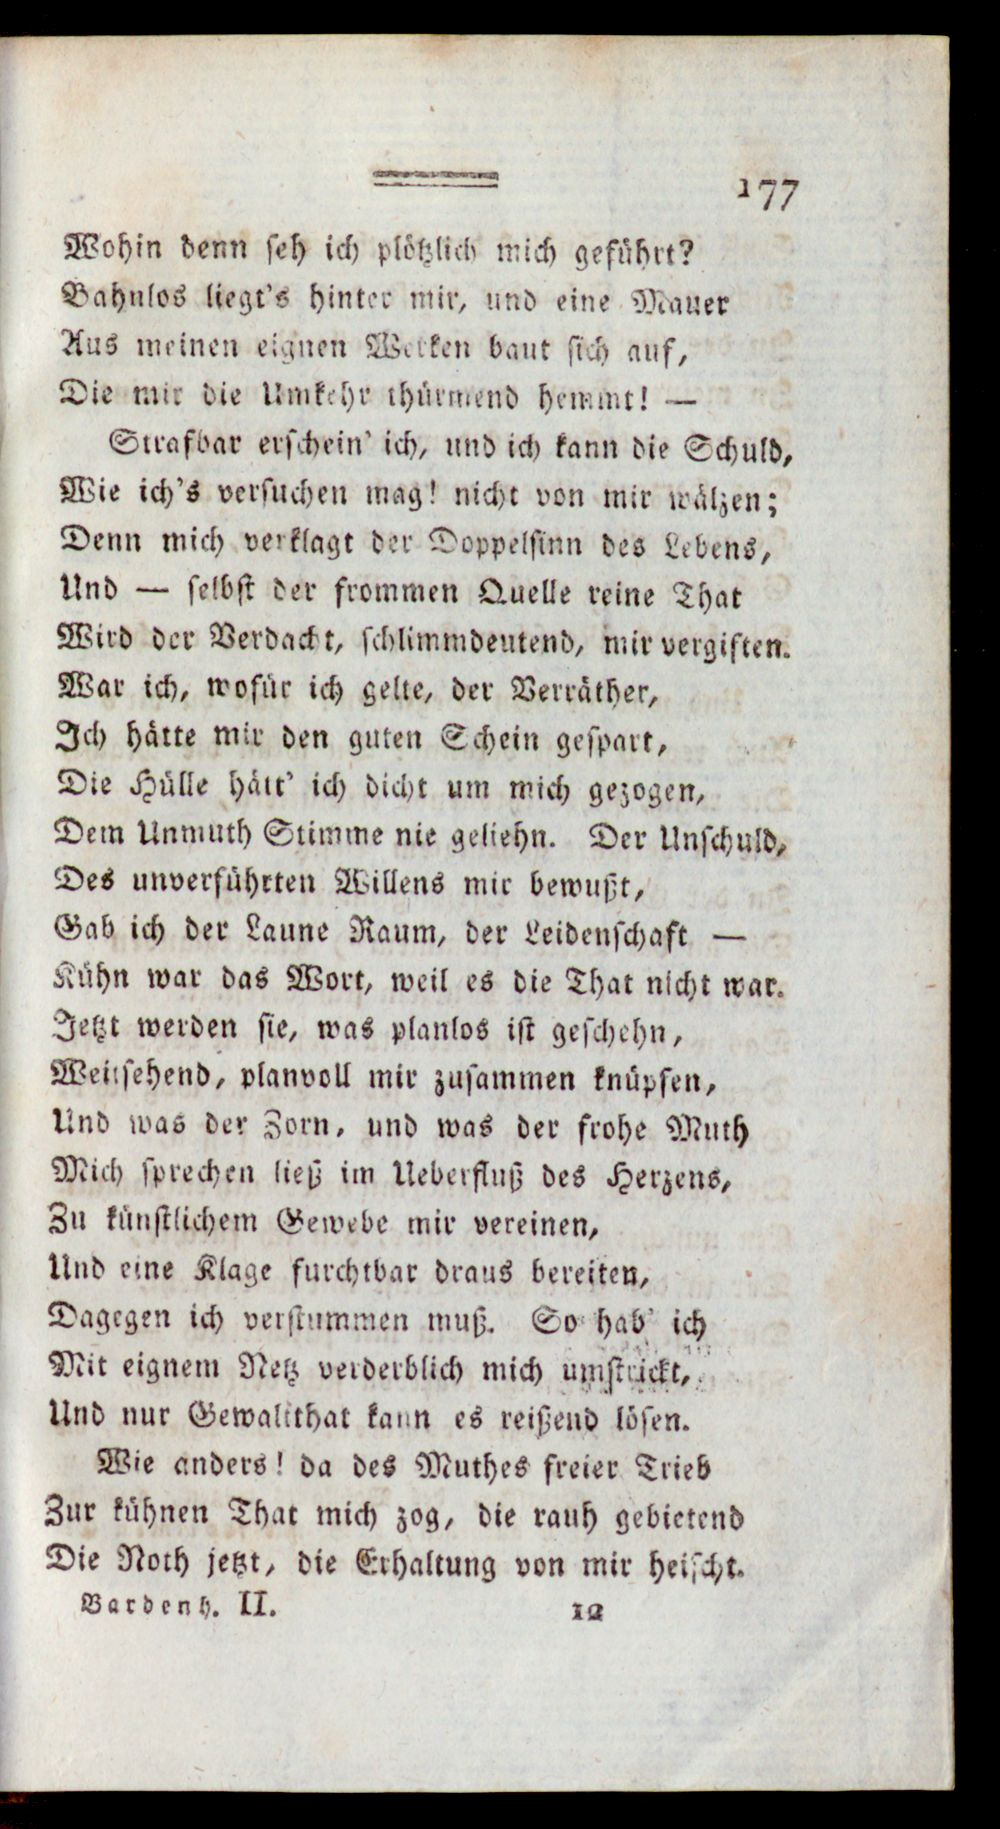 177
Wohin denn seh ich plötzlich mich geführt?
Bahnlos liegt's hinter mir, und eine Mauer
Aus meinen eignen Werken baut sich auf,
Die mir die Umkehr thürmend hemmt! —
Strafbar erschein' ich, und ich kann die Schuld,
Wie ich's versuchen mag! nicht von mir wälzen;
Denn mich verklagt der Doppelsinn des Lebens,
Und — selbst der frommen Quelle reine That
Wird der Verdacht, schlimmdeutend, mir vergiften.
War ich, wofür ich gelte, der Verräther,
Ich hätte mir den guten Schein gespart,
Die Hülle hätt' ich dicht um mich gezogen,
Dem Unmuth Stimme nie geliehn. Der Unschuld,
Des unverführten Willens mir bewußt,
Gab ich der Laune Raum, der Leidenschaft —
Kühn war das Wort, weil es die That nicht war.
Jetzt werden sie, was planlos ist geschehn,
Weitsehend, planvoll mir zusammen knüpfen,
Und was der Zorn, und was der frohe Muth
Mich sprechen ließ im Ueberfluß des Herzens,
Zu künstlichem Gewebe mir vereinen,
Und eine Klage furchtbar draus bereiten,
Dagegen ich verstummen muß. So hab' ich
Mit eignem Netz verderblich mich umstrickt,
Und nur Gewaltthat kann es reißend lösen.
Wie anders! da des Muthes freier Trieb
Zur kühnen That mich zog, die rauh gebietend
Die Noth jetzt, die Erhaltung von mir heischt.
Bardenh. II. 12